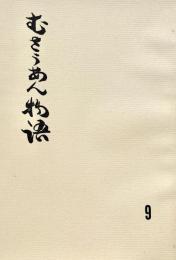 むさうあん物語
9